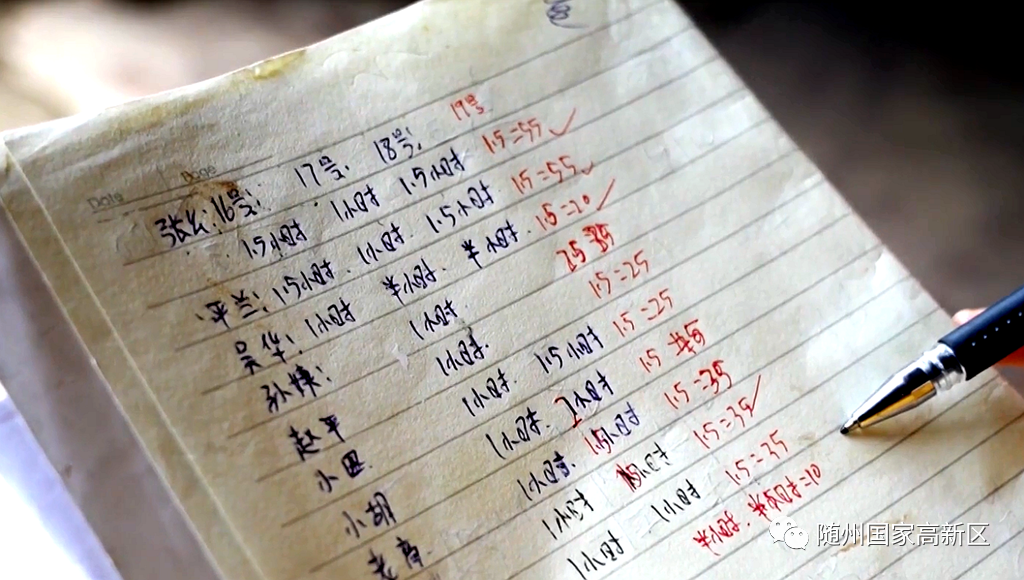 Date Page
张么:16号: 17号: 18号: 19号
1.5小时 1小时 1.5小时 1.5=55 ✓
平兰: 1.5小时. 1小时. 1.5小时 1.5=55 ✓
吴华: 1小时 半小时. 半小时. 1.5=20
孙 : 1小时. 25 35
赵平 1小时. 1.5=25
小四 1小时. 1.5小时 1.5=25
小胡 1小时. 小时 1.5
1小时. 1.5小时 1.5=35
1小时 小时 1.5=35 ✓
1小时 1小时 1.5=35
半小时. 半小时=10
随州国家高新区